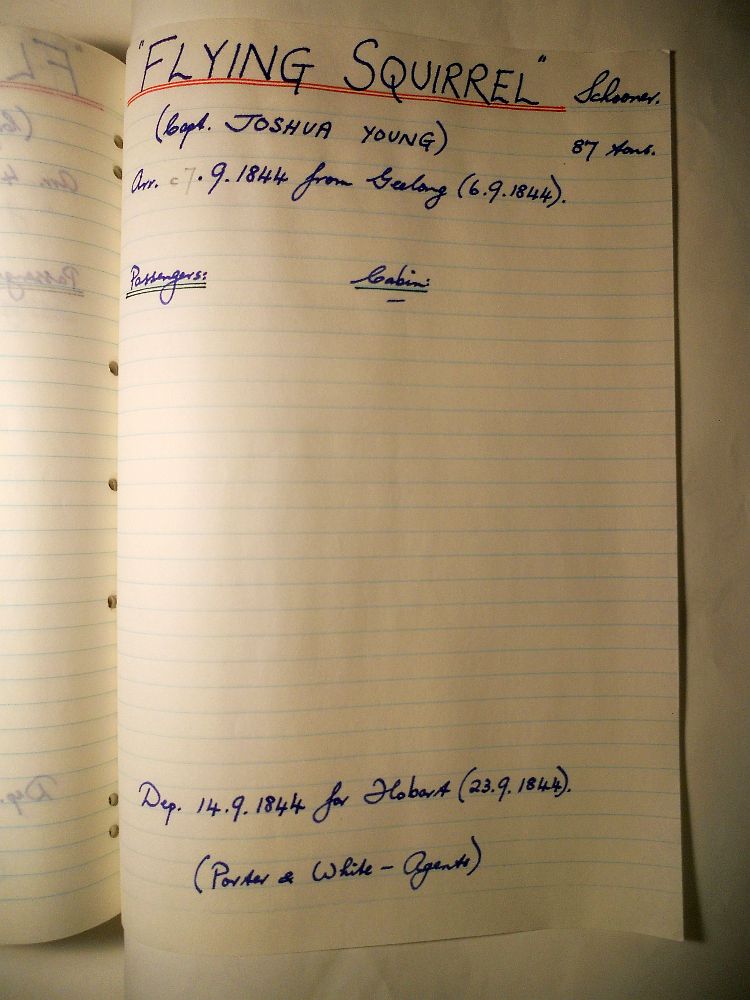 "FLYING SQUIRREL" Schooner.
(Capt. JOSHUA YOUNG) 87 tons.
Arr. c7.9.1844 from Geelong (6.9.1844).
Passengers: Cabin:
Dep. 14.9.1844 for Hobart (23.9.1844).
(Porter & White - Agents)